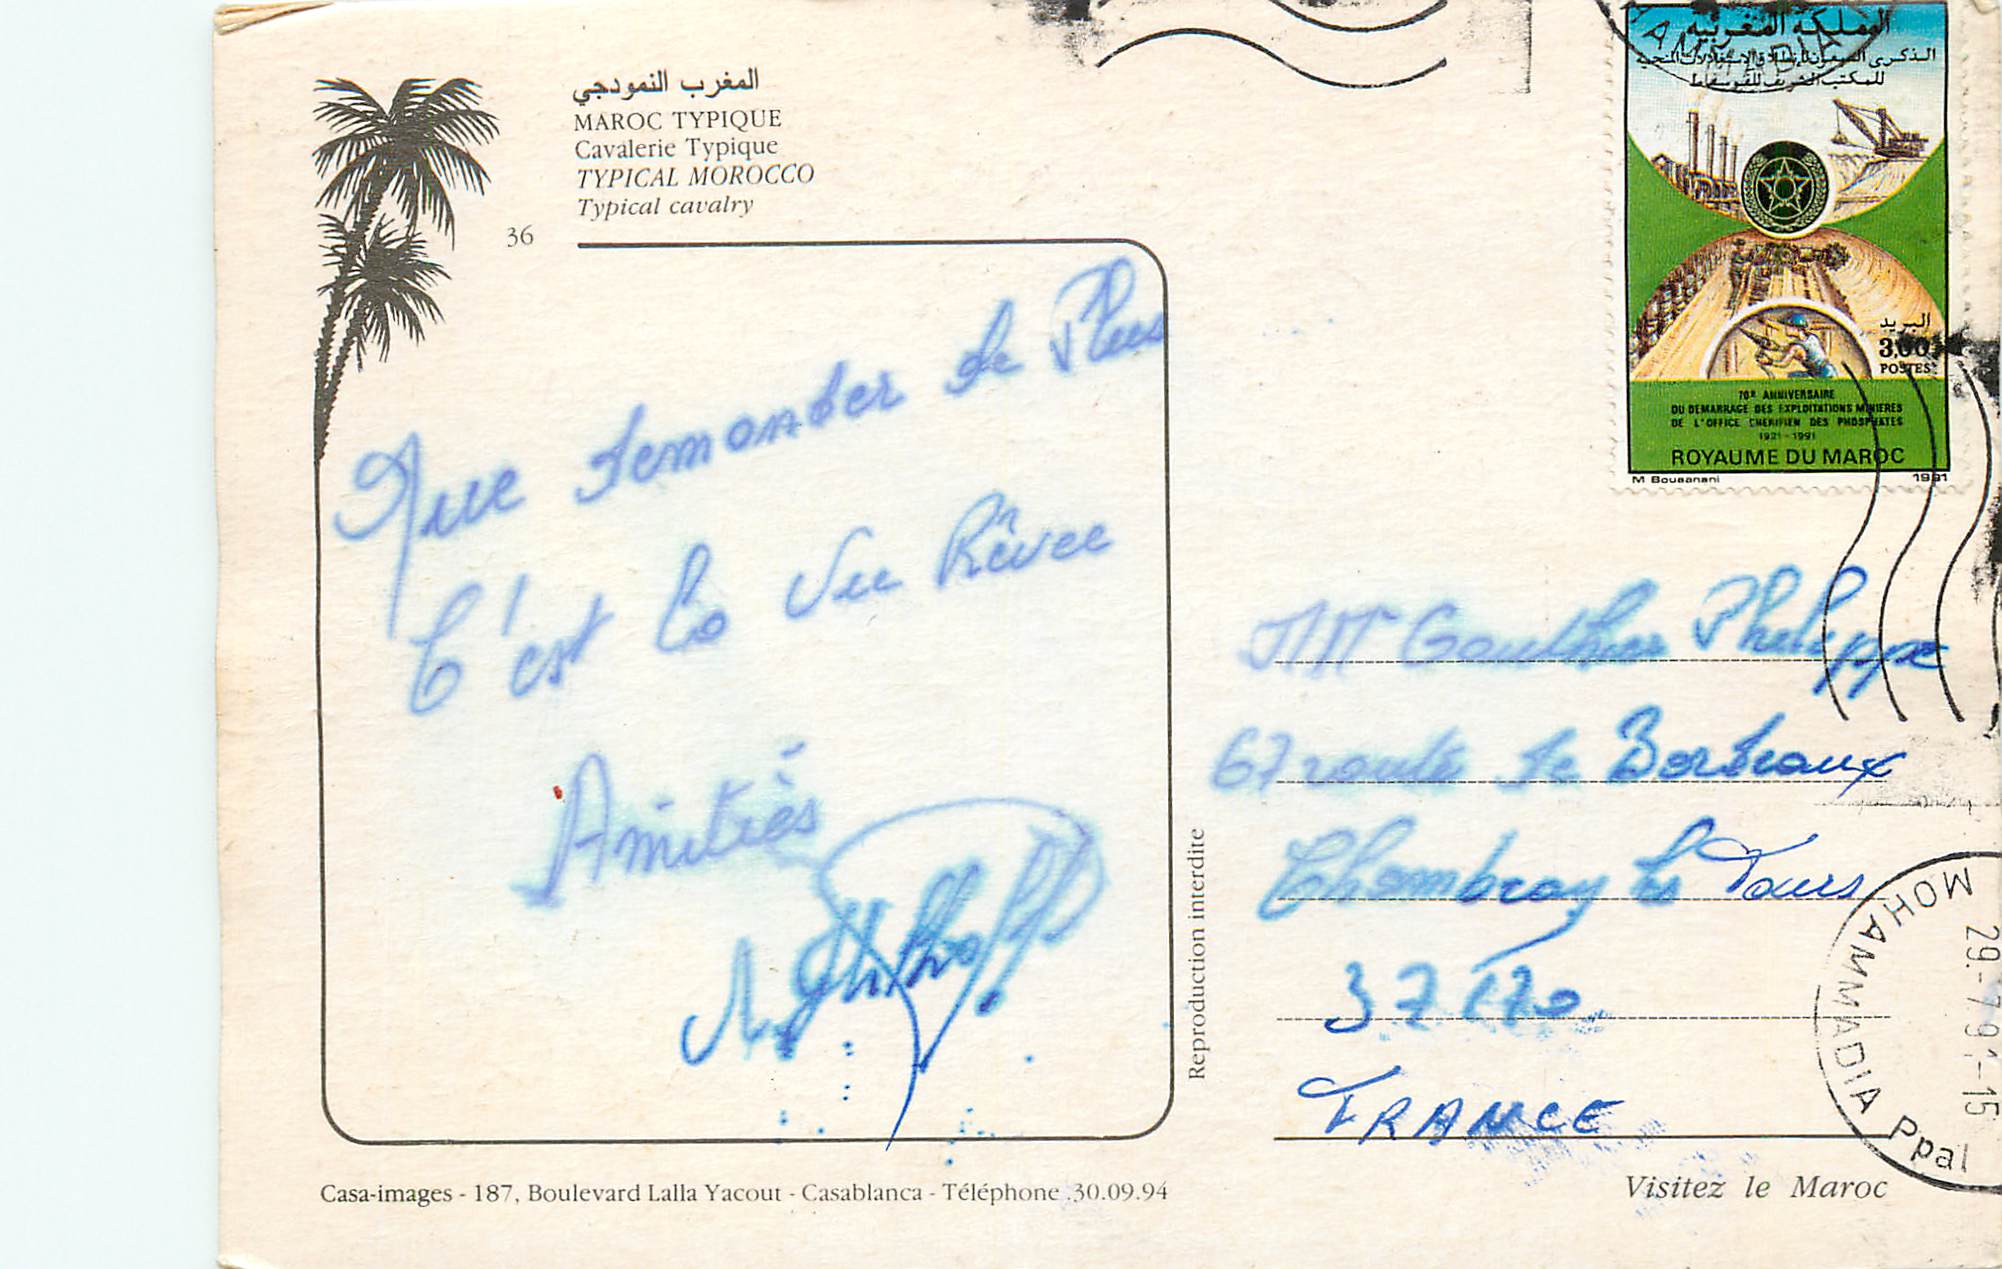 المغرب النمودجي
MAROC TYPIQUE
Cavalerie Typique
TYPICAL MOROCCO
Typical cavalry
36
Que demander de Plus
C'est la vie Rêvee
Amitiés
Mr Gauthier Philippe
67 route de Bordeaux
Chambray les Tours
37170
FRANCE
Reproduction interdite
Casa-images - 187, Boulevard Lalla Yacout - Casablanca - Téléphone :30.09.94
Visitez le Maroc
المملكة المغربية
الذكرى السبعون لانطلاق الاستغلالات المنجمية
للمكتب الشريف للفوسفاط
البريد
3,00
POSTES
70e ANNIVERSAIRE
DU DEMARRAGE DES EXPLOITATIONS MINIERES
DE L'OFFICE CHERIFIEN DES PHOSPHATES
1921-1991
ROYAUME DU MAROC
M Bousanani 1991
MOHAMMADIA Ppal
29.-7.91-15